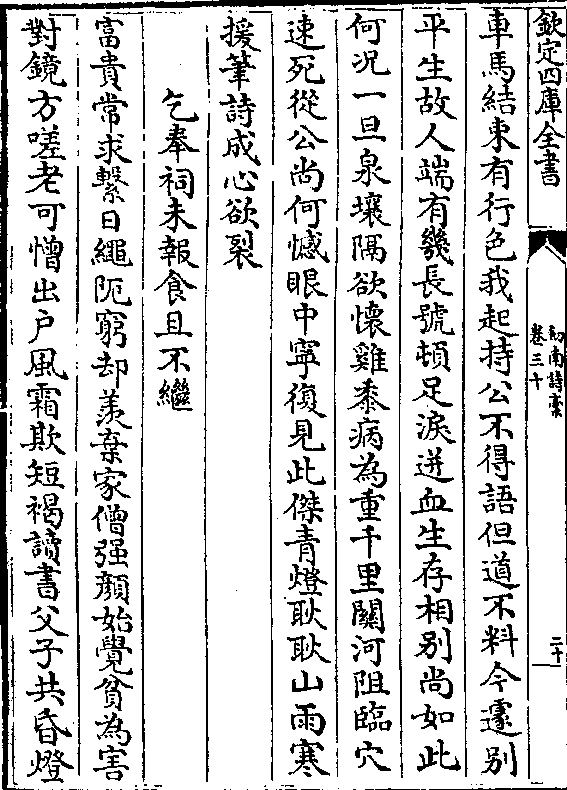 欽定四庫全書
劍南詩稾
卷三十
二十
車馬結束有行色我起持公不得語但道不料今遽別
平生故人端有幾長號頓足淚迸血生存相別尚如此
何况一旦泉壤隔欲懷雞黍病為重千里關河阻臨穴
速死從公尚何憾眼中寧復見此傑青燈耿耿山雨寒
援筆詩成心欲裂
乞奉祠未報食且不繼
富貴常求繫日繩阨窮却羨棄家僧强顔始覺貧為害
對鏡方嗟老可憎出户風霜欺短褐讀書父子共昏燈